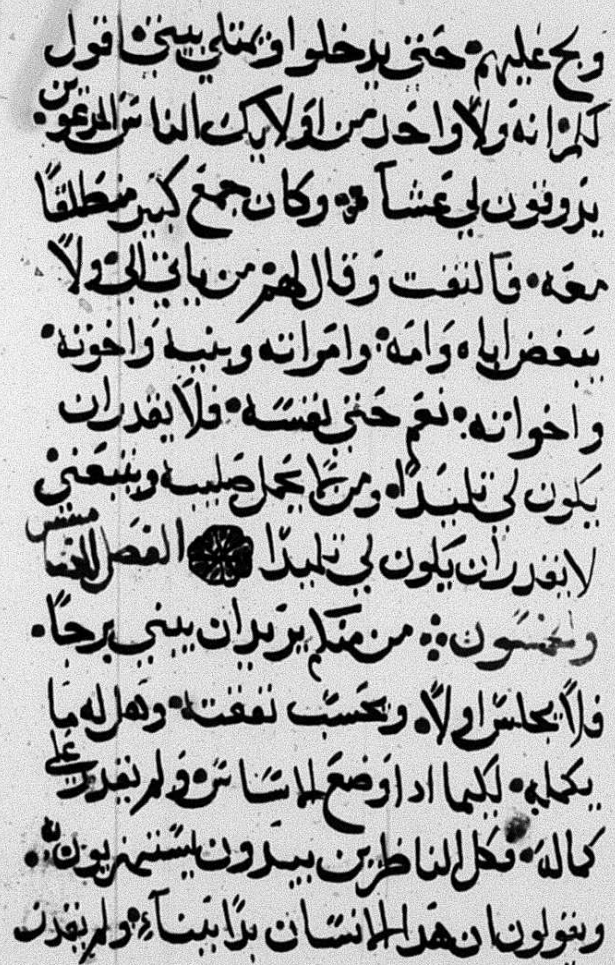 عليهم حتى يدخلوا ويمتلي بيتي اقول
لكم انه ولا واحد من اولايك الناس المدعوين
يذوقون لي عشآ وكان جمع كبير منطلقًا
معه فالتفت وقال لهم من ياتي الي ولا
يبغض اباه وامه وامراته وبنيه واخوته
واخواته نعم حتى نفسه فلا يقدر ان
يكون لي تليدًا ومن لا يحمل صليبه ويتبعني
لا يقدر ان يكون لي تليدًا الفصل
والخمسون من منكم يريد ان يبني برجًا
فلا يجلس اولًا ويحسب نفقته وهل له ما
يكمله لكيما ادا وضع الاساس ولم يقدر على
كماله فكل الناظرين يبدون يستهزيون به
ويقولون ان هدا الانسان بدا ببنآء ولم يقدر